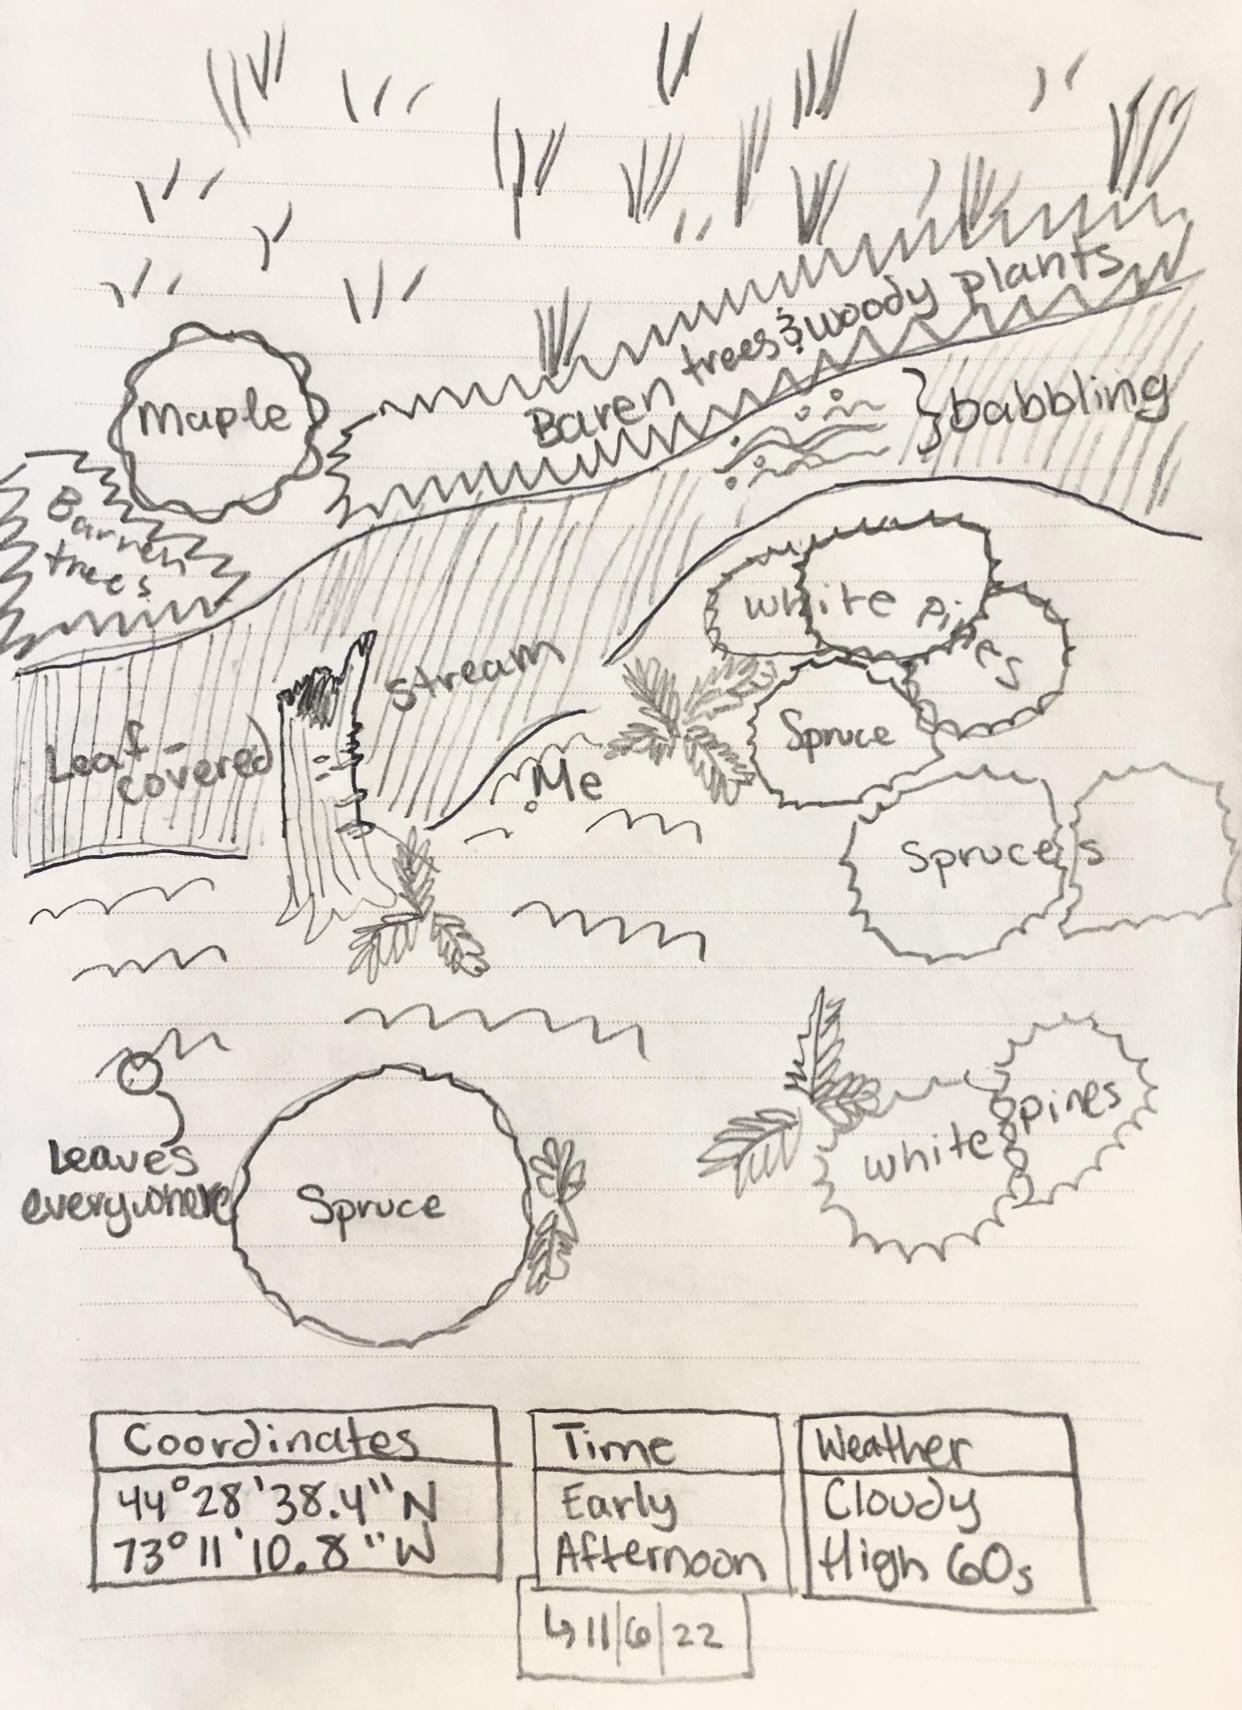 Baren trees & woody plants
Maple
} babbling
Barren
trees
white pines
stream
Spruce
Leaf-
covered
Me
Spruces
pines
white
Leaves
everywhere
Spruce
Coordinates
44°28'38.4"N
73°11'10.8"W
Time
Early
Afternoon
↳ 11/6/22
Weather
Cloudy
High 60s